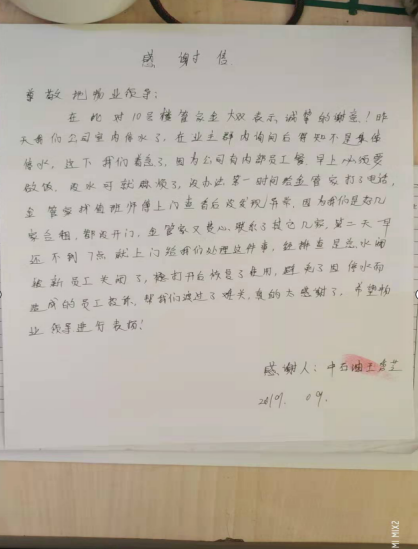 感谢信
尊敬地物业领导:
在此对10号楼管家金大双表示诚挚的谢意!昨
天我们公司室内停水了,在业主群内询问后得知不是集体
停水,这下我们着急了,因为公司有内部员工餐,早上必须要
做饭,没水可就麻烦了,没办法第一时间给金管家打了电话,
金管家找值班师傅上门查看后没发现异常,因为我们是好几
家合租,都没开门,金管家又费心联系了其它几家,第二天一早
还不到7点就上门给我们处理这件事,经排查是总水阀
被新员工关闭了,打开后恢复了使用,避免了因停水而
造成的员工投诉,帮我们渡过了难关,真的太感谢了,希望物
业领导进行表扬!
感谢人:中石油王
2019. 09.
MI MIX2